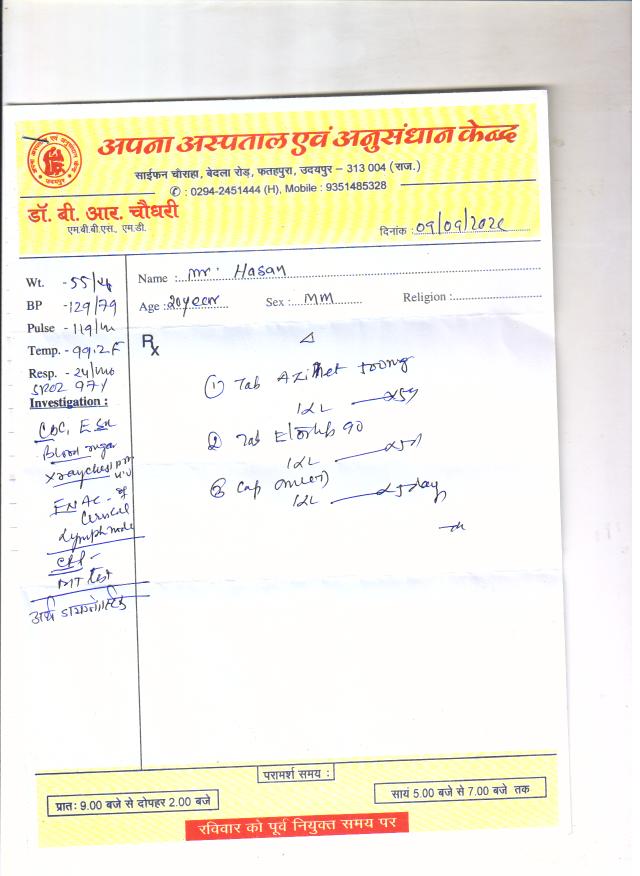 अपना अस्पताल एवं अनुसंधान केन्द्र
साईफन चौराहा, बेदला रोड़, फतहपुरा, उदयपुर – 313 004 (राज.)
✆ : 0294-2451444 (H), Mobile : 9351485328
डॉ. बी. आर. चौधरी
एम.बी.बी.एस., एम.डी.
दिनांक : 09/09/202
Name : Mr. Hasan
Age : 20 year Sex : MM Religion :
Wt. - 55
BP - 129/79
Pulse - 119/m
Temp. - 99.2 F
Resp. - 24/m
SPO2 97%
Investigation :
CBC, ESR
Blood sugar
Xray chest
FNAC - of
Cervical
Lymph node
MT test
Rx
① Tab 500mg
② Tab 90
③ Cap x 5 days
परामर्श समय :
प्रातः 9.00 बजे से दोपहर 2.00 बजे
सायं 5.00 बजे से 7.00 बजे तक
रविवार को पूर्व नियुक्त समय पर